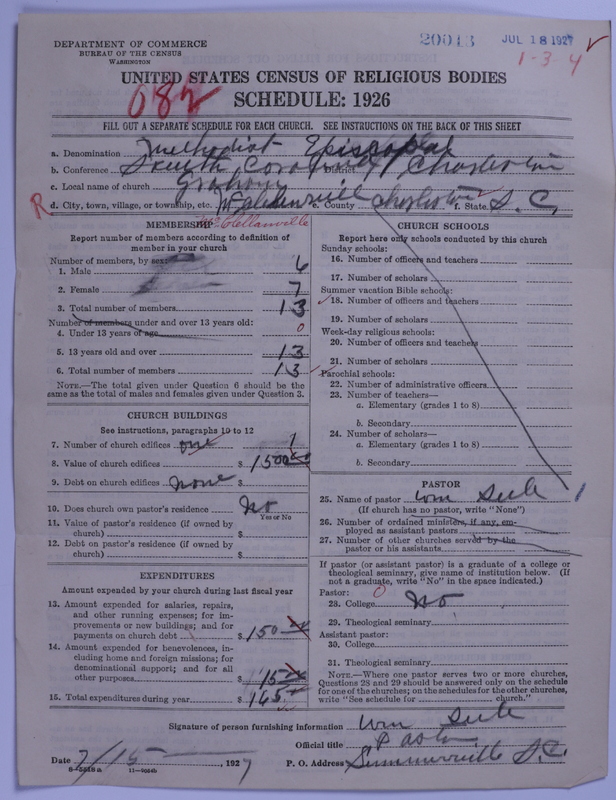 DEPARTMENT OF COMMERCE
BUREAU OF THE CENSUS
WASHINGTON
20013 JUL 18 1927
1-3-4
UNITED STATES CENSUS OF RELIGIOUS BODIES
SCHEDULE: 1926
082
FILL OUT A SEPARATE SCHEDULE FOR EACH CHURCH. SEE INSTRUCTIONS ON THE BACK OF THIS SHEET
a. Denomination Methodist Episcopal
b. Conference South Carolina District Charleston
c. Local name of church Graham
R d. City, town, village, or township, etc. e. County Charleston f. State S. C.
McClellanville
MEMBERSHIP
Report number of members according to definition of member in your church
Number of members, by sex:
1. Male 6
2. Female 7
3. Total number of members 13
Number of members under and over 13 years old:
4. Under 13 years of age 0
5. 13 years old and over 13
6. Total number of members 13
NOTE.—The total given under Question 6 should be the
same as the total of males and females given under Question 3.
CHURCH BUILDINGS
See instructions, paragraphs 10 to 12
7. Number of church edifices one 1
8. Value of church edifices $ 1500
9. Debt on church edifices none $
10. Does church own pastor's residence No
Yes or No
11. Value of pastor's residence (if owned by
church) $
12. Debt on pastor's residence (if owned by
church) $
EXPENDITURES
Amount expended by your church during last fiscal year
13. Amount expended for salaries, repairs,
and other running expenses; for im-
provements or new buildings; and for
payments on church debt $ 150
14. Amount expended for benevolences, in-
cluding home and foreign missions; for
denominational support; and for all
other purposes $ 15
15. Total expenditures during year $ 165
CHURCH SCHOOLS
Report here only schools conducted by this church
Sunday schools:
16. Number of officers and teachers
17. Number of scholars
Summer vacation Bible schools:
18. Number of officers and teachers
19. Number of scholars
Week-day religious schools:
20. Number of officers and teachers
21. Number of scholars
Parochial schools:
22. Number of administrative officers
23. Number of teachers—
a. Elementary (grades 1 to 8)
b. Secondary
24. Number of scholars—
a. Elementary (grades 1 to 8)
b. Secondary
PASTOR
25. Name of pastor Wm
(If church has no pastor, write "None")
26. Number of ordained ministers, if any, em-
ployed as assistant pastors
27. Number of other churches served by the
pastor or his assistants
If pastor (or assistant pastor) is a graduate of a college or
theological seminary, give name of institution below. (If
not a graduate, write "No" in the space indicated.)
Pastor: 0
28. College No
29. Theological seminary
Assistant pastor:
30. College
31. Theological seminary
NOTE.—Where one pastor serves two or more churches,
Questions 28 and 29 should be answered only on the schedule
for one of the churches; on the schedules for the other churches,
write "See schedule for church."
Signature of person furnishing information Wm
Official title Pastor
Date 7/15, 1927 P. O. Address Summerville S.C.